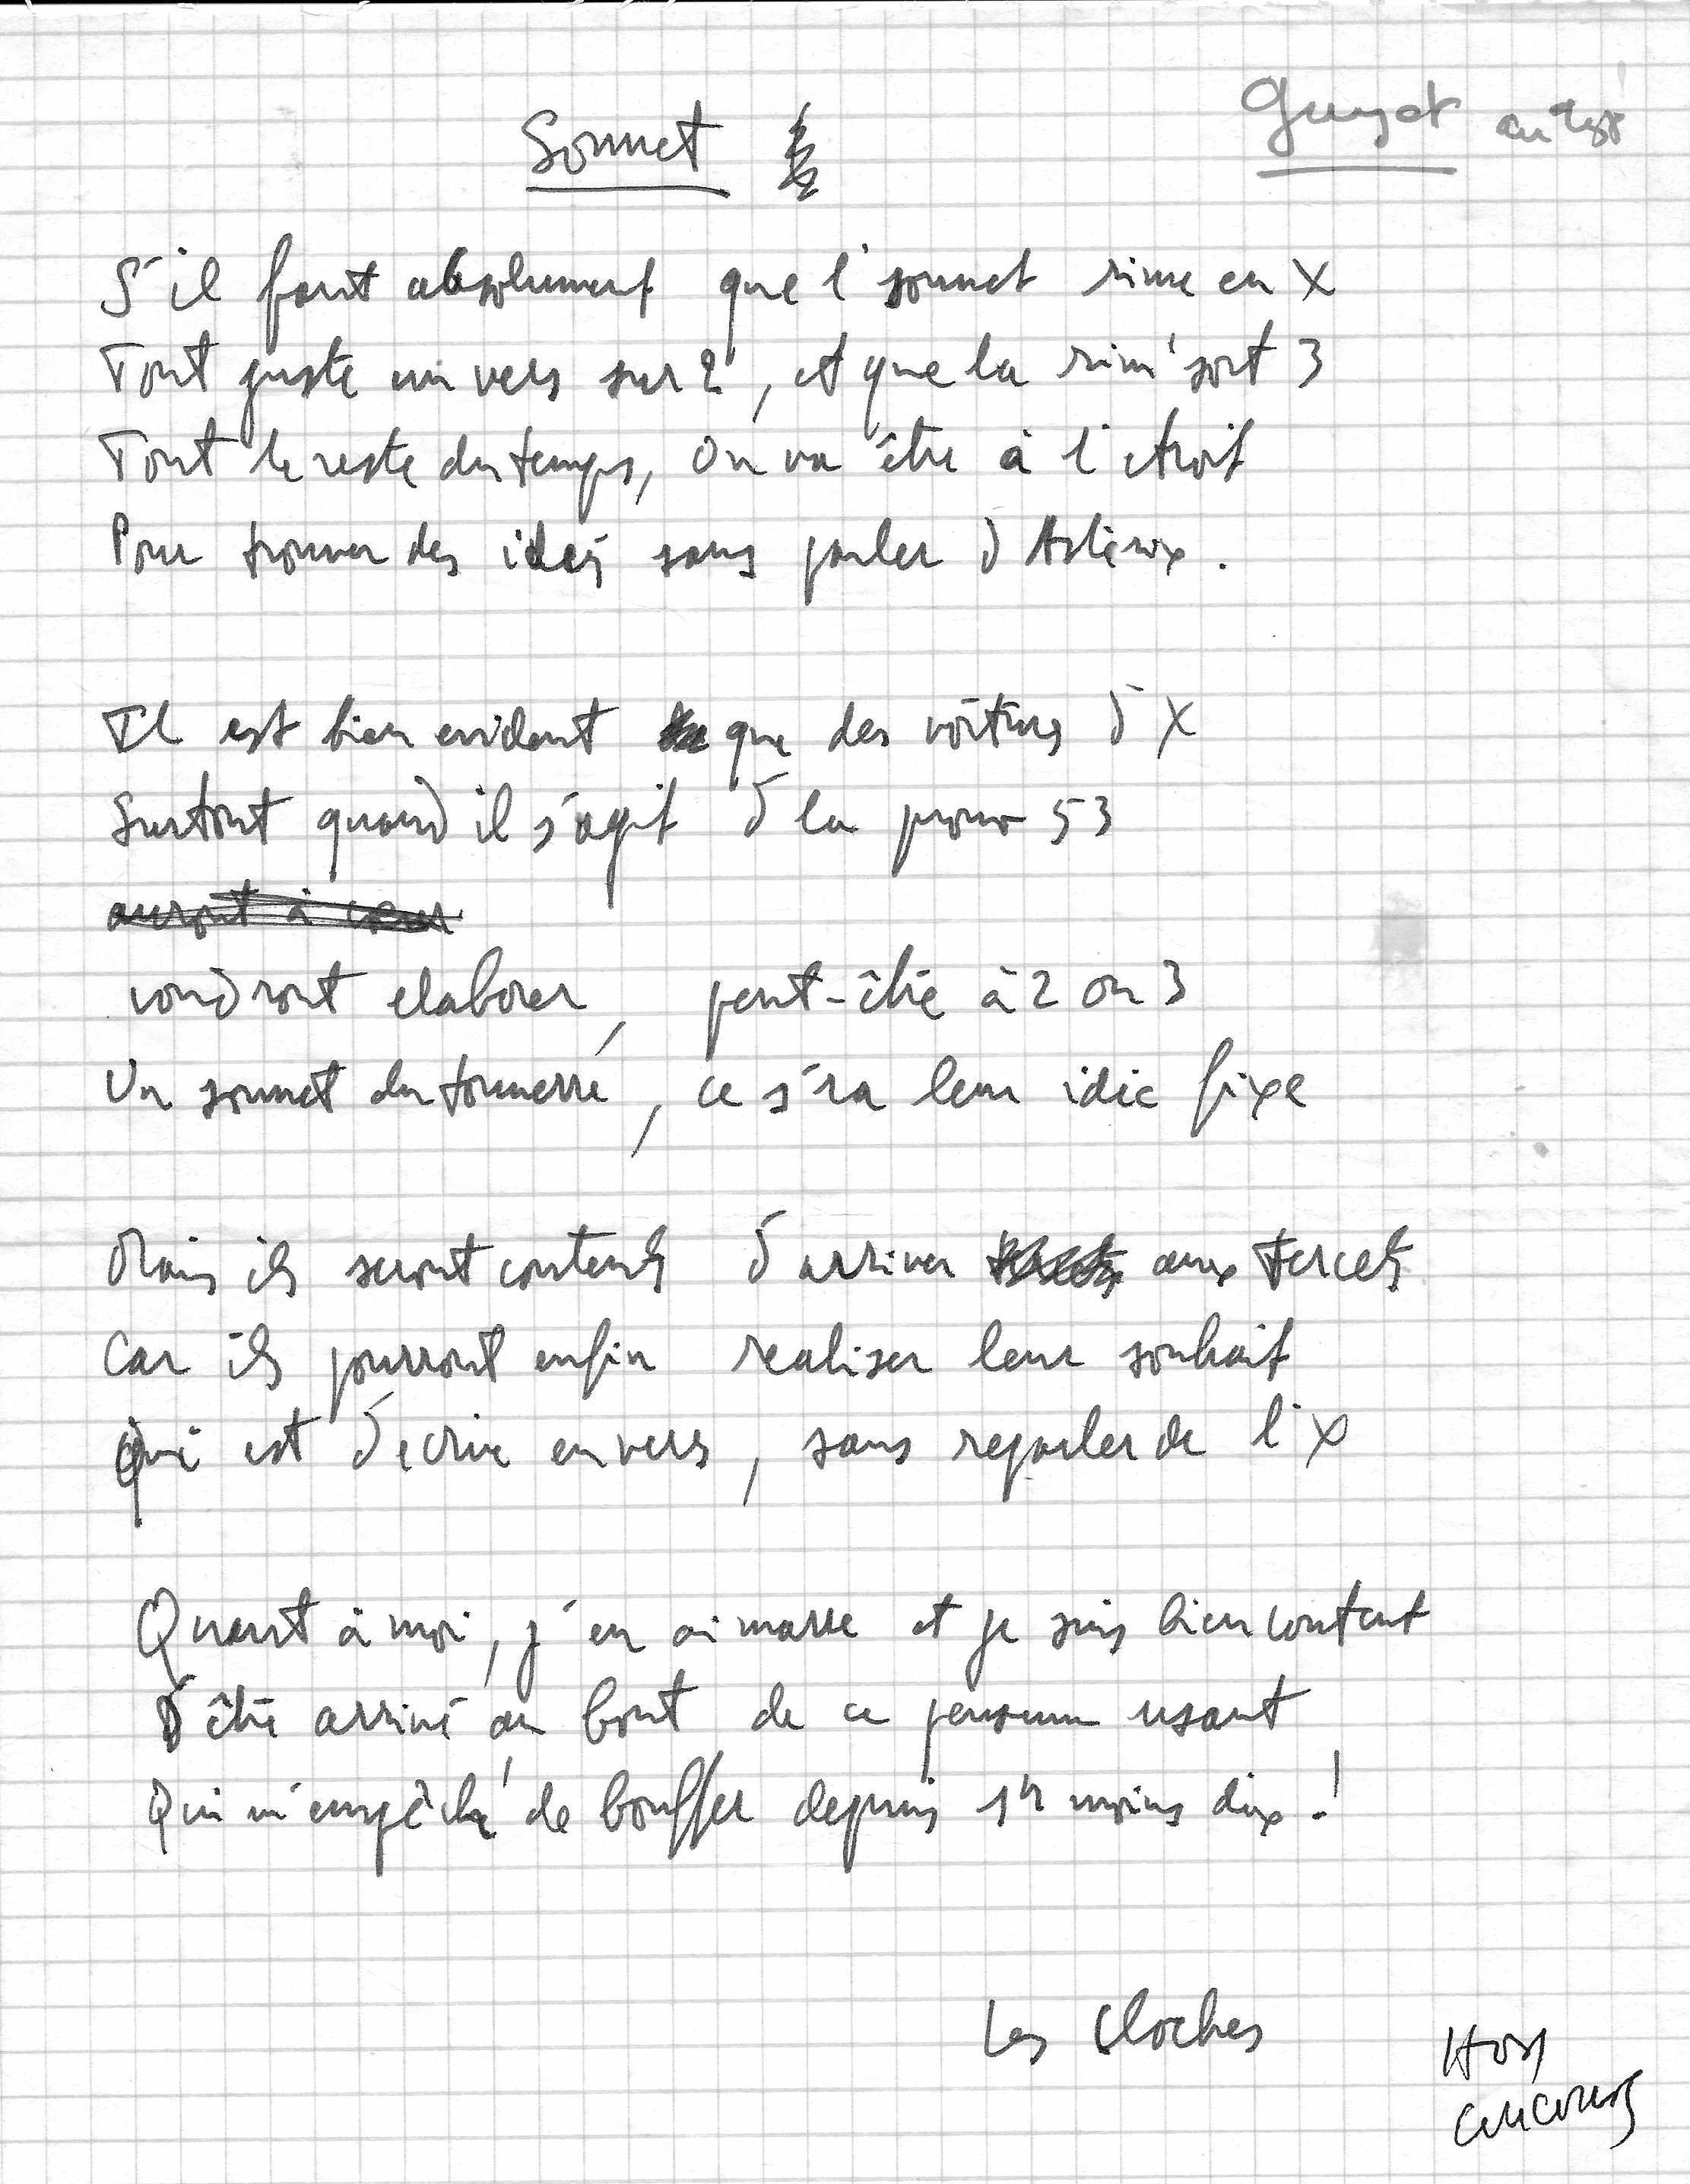 Sonnet
Guyot
S'il faut absolument que l'sonnet rime en X
Tout juste un vers sur 2, et que la rim' soit 3
Tout le reste du temps, on va être à l'étroit
Pour trouver des idées sans parler d'Astérix.
Il est bien evident que des voitures d'X
Surtout quand il s'agit d'la promo 53
auront à coeur
voudront elaborer, peut-être à 2 ou 3
Un sonnet du tonnerre, ce s'ra leur idée fixe
Mais ils seront contents d'arriver aux tercets
Car ils pourront enfin realiser leur souhait
Qui est d'ecrire en vers, sans reparler de l'x
Quant à moi, j'en ai marre et je suis bien content
D'être arrivé au bout de ce pensum usant
Qui m'empêche de bouffer depuis 1h moins dix !
Les Cloches
Hors
concours